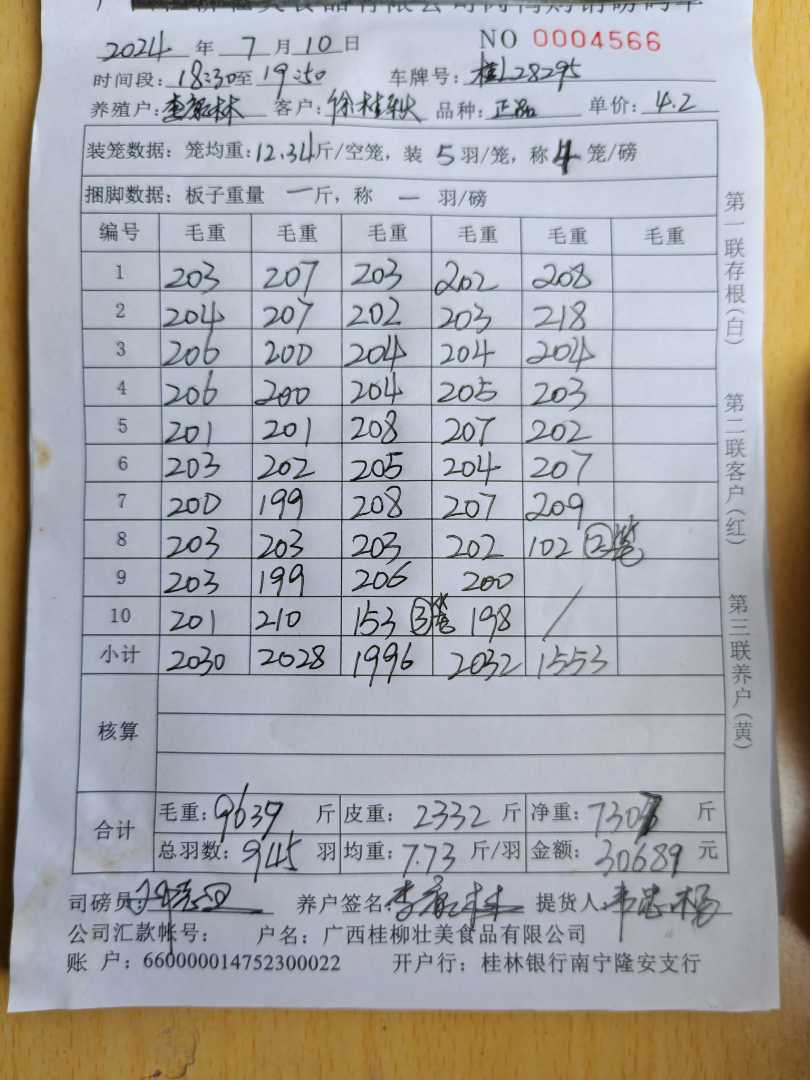 2024 年 7 月 10 日 NO 0004566
时间段: 18:30至19:50 车牌号: 桂L28295
养殖户: 李家林 客户: 徐桂 品种: 正品 单价: 4.2
装笼数据: 笼均重:12.34斤/空笼, 装 5 羽/笼, 称 4 笼/磅
捆脚数据: 板子重量 一 斤, 称 一 羽/磅
编号 毛重 毛重 毛重 毛重 毛重 毛重
1 203 207 203 202 208
2 204 207 202 203 218
3 206 200 204 204 204
4 206 200 204 205 203
5 201 201 208 207 202
6 203 202 205 204 207
7 200 199 208 207 209
8 203 203 203 202 102 ②笼
9 203 199 206 200
10 201 210 153 ③笼 198 /
小计 2030 2028 1996 2032 1553
核算
合计 毛重: 9639 斤 皮重: 2332 斤 净重: 7307 斤
总羽数: 945 羽 均重: 7.73 斤/羽 金额: 30689 元
司磅员: 养户签名: 李家林 提货人:
公司汇款帐号: 户名: 广西桂柳壮美食品有限公司
账 户: 660000014752300022 开户行: 桂林银行南宁隆安支行
第一联存根(白)
第二联客户(红)
第三联养户(黄)